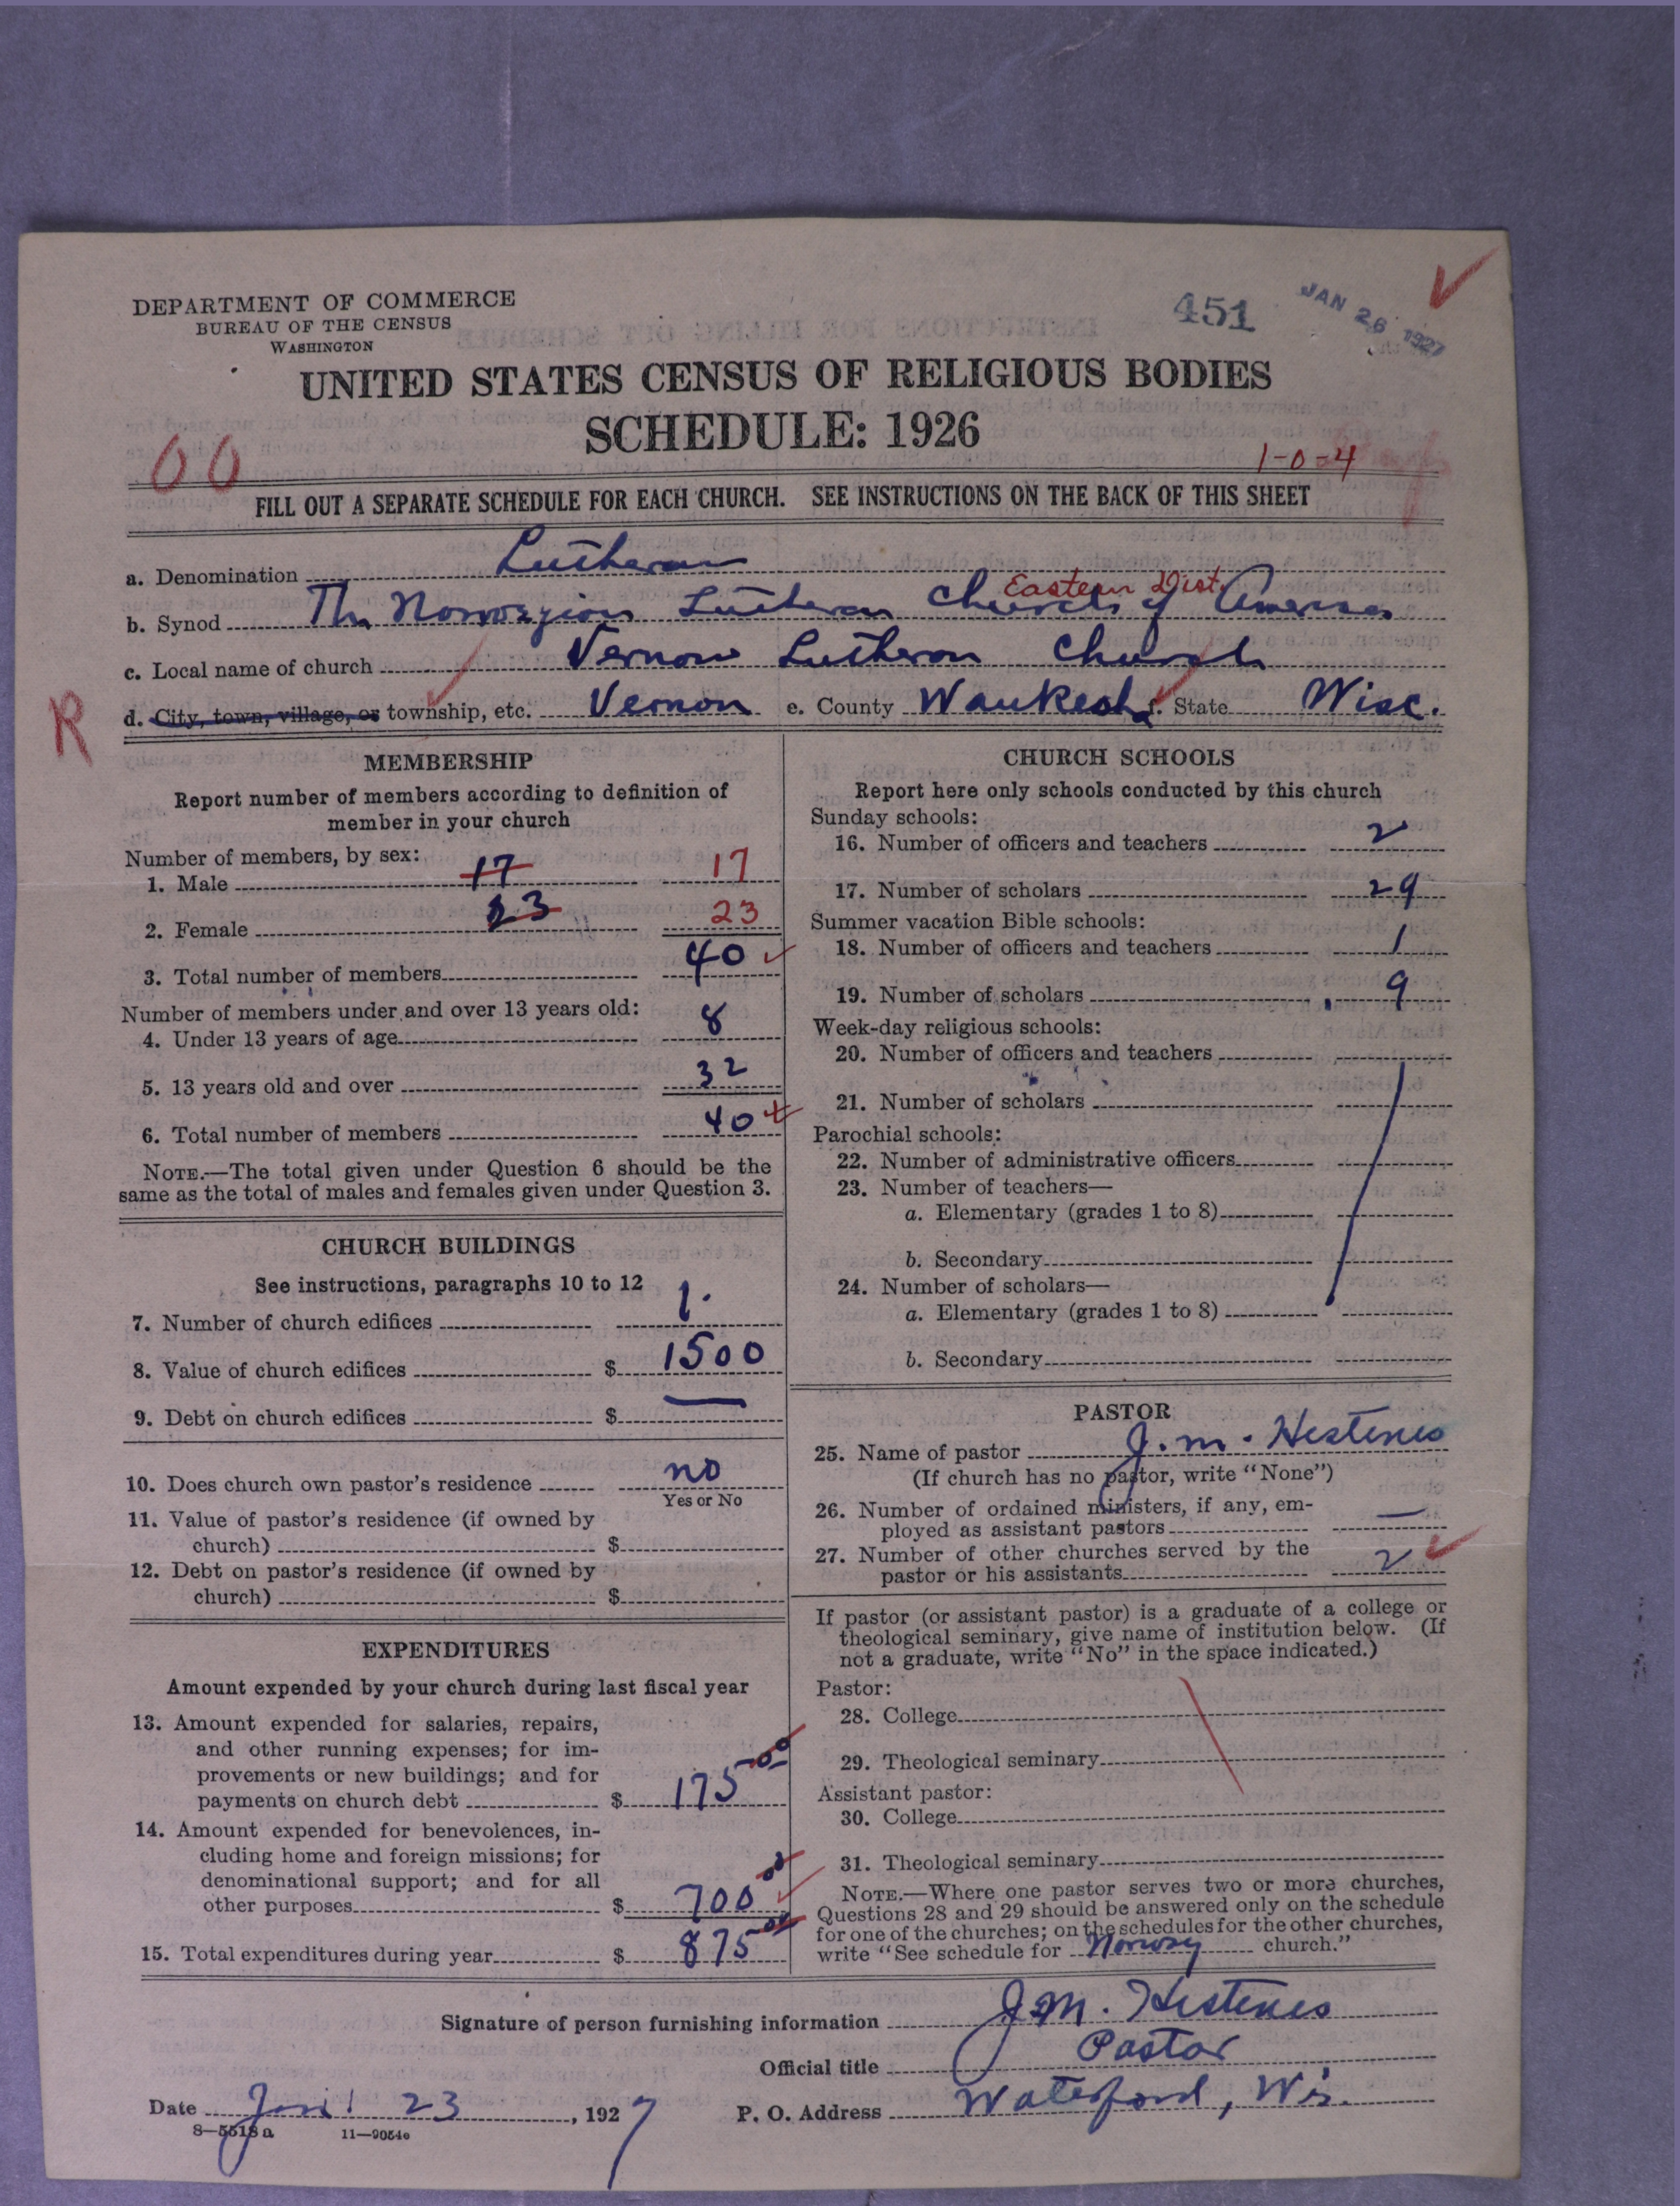 DEPARTMENT OF COMMERCE
BUREAU OF THE CENSUS
WASHINGTON
451
JAN 26 1927
UNITED STATES CENSUS OF RELIGIOUS BODIES
SCHEDULE: 1926
00
1-0-4
FILL OUT A SEPARATE SCHEDULE FOR EACH CHURCH. SEE INSTRUCTIONS ON THE BACK OF THIS SHEET
a. Denomination Lutheran
Eastern Dist.
b. Synod The Norwegian Lutheran Church of America
c. Local name of church Vernon Lutheran Church
R
d. City, town, village, or township, etc. Vernon e. County Waukesha f. State Wisc.
MEMBERSHIP
Report number of members according to definition of
member in your church
Number of members, by sex:
1. Male 17 17
2. Female 23 23
3. Total number of members 40
Number of members under and over 13 years old:
4. Under 13 years of age 8
5. 13 years old and over 32
6. Total number of members 40
NOTE.—The total given under Question 6 should be the
same as the total of males and females given under Question 3.
CHURCH BUILDINGS
See instructions, paragraphs 10 to 12
7. Number of church edifices 1.
8. Value of church edifices $ 1500
9. Debt on church edifices $ —
10. Does church own pastor's residence no
Yes or No
11. Value of pastor's residence (if owned by
church) $
12. Debt on pastor's residence (if owned by
church) $
EXPENDITURES
Amount expended by your church during last fiscal year
13. Amount expended for salaries, repairs,
and other running expenses; for im-
provements or new buildings; and for
payments on church debt $ 175 00
14. Amount expended for benevolences, in-
cluding home and foreign missions; for
denominational support; and for all
other purposes $ 700 00
15. Total expenditures during year $ 875 00
CHURCH SCHOOLS
Report here only schools conducted by this church
Sunday schools:
16. Number of officers and teachers 2
17. Number of scholars 29
Summer vacation Bible schools:
18. Number of officers and teachers 1
19. Number of scholars 9
Week-day religious schools:
20. Number of officers and teachers
21. Number of scholars
Parochial schools:
22. Number of administrative officers
23. Number of teachers—
a. Elementary (grades 1 to 8)
b. Secondary
24. Number of scholars—
a. Elementary (grades 1 to 8)
b. Secondary
PASTOR
25. Name of pastor J. M. Hestenes
(If church has no pastor, write "None")
26. Number of ordained ministers, if any, em-
ployed as assistant pastors —
27. Number of other churches served by the
pastor or his assistants 2
If pastor (or assistant pastor) is a graduate of a college or
theological seminary, give name of institution below. (If
not a graduate, write "No" in the space indicated.)
Pastor:
28. College
29. Theological seminary
Assistant pastor:
30. College
31. Theological seminary
NOTE.—Where one pastor serves two or more churches,
Questions 28 and 29 should be answered only on the schedule
for one of the churches; on the schedules for the other churches,
write "See schedule for Norway church."
Signature of person furnishing information J. M. Hestenes
Official title Pastor
Date Jan. 23, 1927 P. O. Address Waterford, Wis.
8—5518a 11—9054c